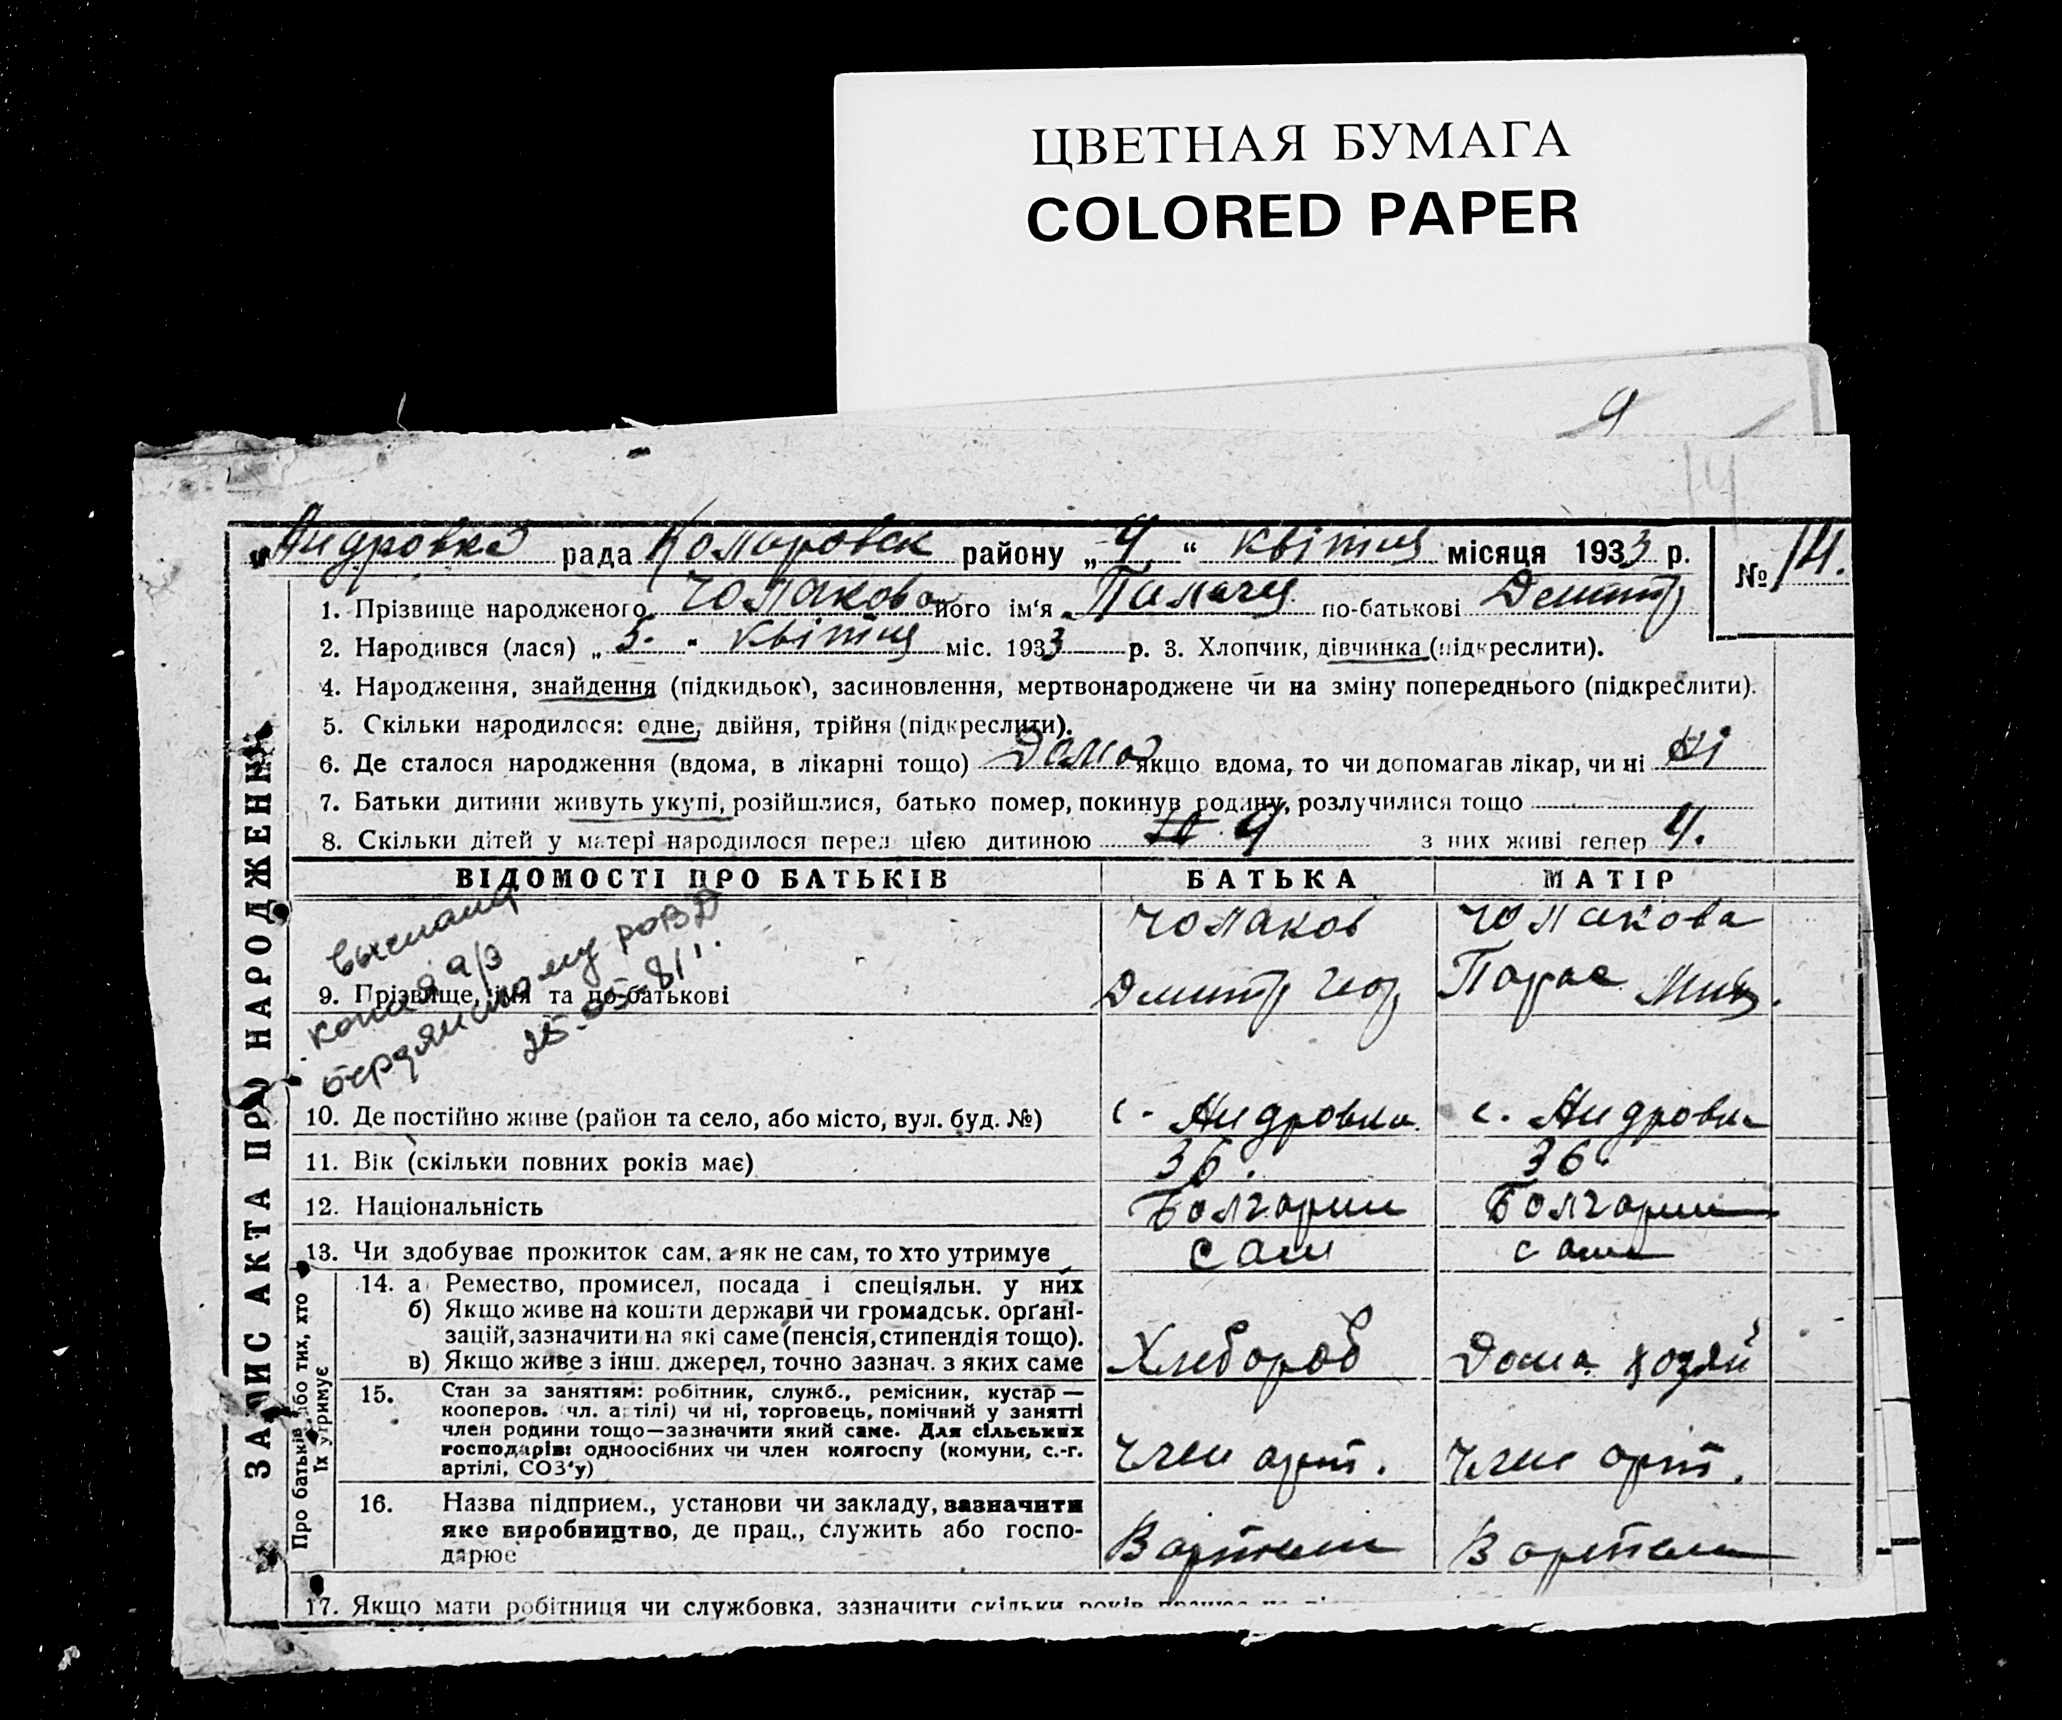 ЦВЕТНАЯ БУМАГА
COLORED PAPER
9
14
„Андровка рада Коларовск району „4“ квітня місяця 1933 р.
№ 14.
1. Прізвище народженого Чолакова його ім'я по-батькові Дмитр
2. Народився (лася) „5.“ квітня міс. 1933 р. 3. Хлопчик, дівчинка (підкреслити).
4. Народження, знайдення (підкидьок), засиновлення, мертвонароджене чи на зміну попереднього (підкреслити).
5. Скільки народилося: одне, двійня, трійня (підкреслити).
6. Де сталося народження (вдома, в лікарні тощо) Дома якщо вдома, то чи допомагав лікар, чи ні ні
7. Батьки дитини живуть укупі, розійшлися, батько помер, покинув родину, розлучилися тощо
8. Скільки дітей у матері народилося перед цією дитиною 9 з них живі тепер 4.
ВІДОМОСТІ ПРО БАТЬКІВ БАТЬКА МАТІР
выслана
копия а/з
бердянскому РОВД
25-05-81г.
9. Прізвище, імя та по-батькові
Чолаков
Дмитр Геор
Чолакова
Парас
10. Де постійно живе (район та село, або місто, вул. буд. №) с. Андровка с. Андровка
11. Вік (скільки повних років має) 36. 36.
12. Національність Болгарин Болгарин
13. Чи здобуває прожиток сам, а як не сам, то хто утримує сам сам
14. а Ремество, промисел, посада і спеціяльн. у них
б) Якщо живе на кошти держави чи громадськ. організацій, зазначити на які саме (пенсія, стипендія тощо).
в) Якщо живе з інш. джерел, точно зазнач. з яких саме
Хлебороб Дома хозяй
15. Стан за заняттям: робітник, служб., ремісник, кустар —
кооперов. чл. артілі) чи ні, торговець, помічний у занятті
член родини тощо—зазначити який саме. Для сільських
господарів: одноосібних чи член колгоспу (комуни, с.-г.
артілі, СОЗ'у)
Член арт. Член арт.
16. Назва підприєм., установи чи закладу, зазначити
яке виробництво, де прац., служить або госпо-
дарює
В артели В артели
17. Якщо мати робітниця чи службовка, зазначити скільки років працює
ЗАПИС АКТА ПРО НАРОДЖЕННЯ
Про батьків або тих, хто
їх утримує